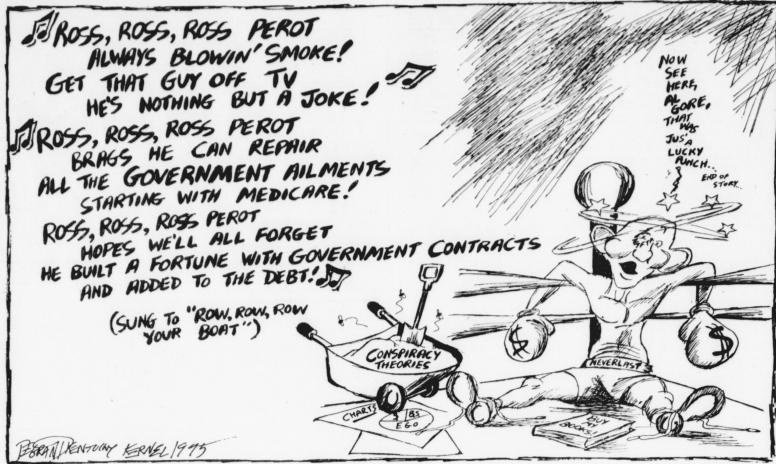 ROSS, ROSS, ROSS PEROT
ALWAYS BLOWIN' SMOKE!
GET THAT GUY OFF TV
HE'S NOTHING BUT A JOKE!
ROSS, ROSS, ROSS PEROT
BRAGS HE CAN REPAIR
ALL THE GOVERNMENT AILMENTS
STARTING WITH MEDICARE!
ROSS, ROSS, ROSS PEROT
HOPES WE'LL ALL FORGET
HE BUILT A FORTUNE WITH GOVERNMENT CONTRACTS
AND ADDED TO THE DEBT!
(SUNG TO "ROW, ROW, ROW
YOUR BOAT")
NOW
SEE
HERE,
AL
GORE,
THAT
WAS
JUS'A
LUCKY
PUNCH..
END OF
STORY..
CONSPIRACY
THEORIES
CHARTS
BS
EGO
$
$
NEVERLAST
BUY
BOOK!
KENTUCKY KERNEL 1995